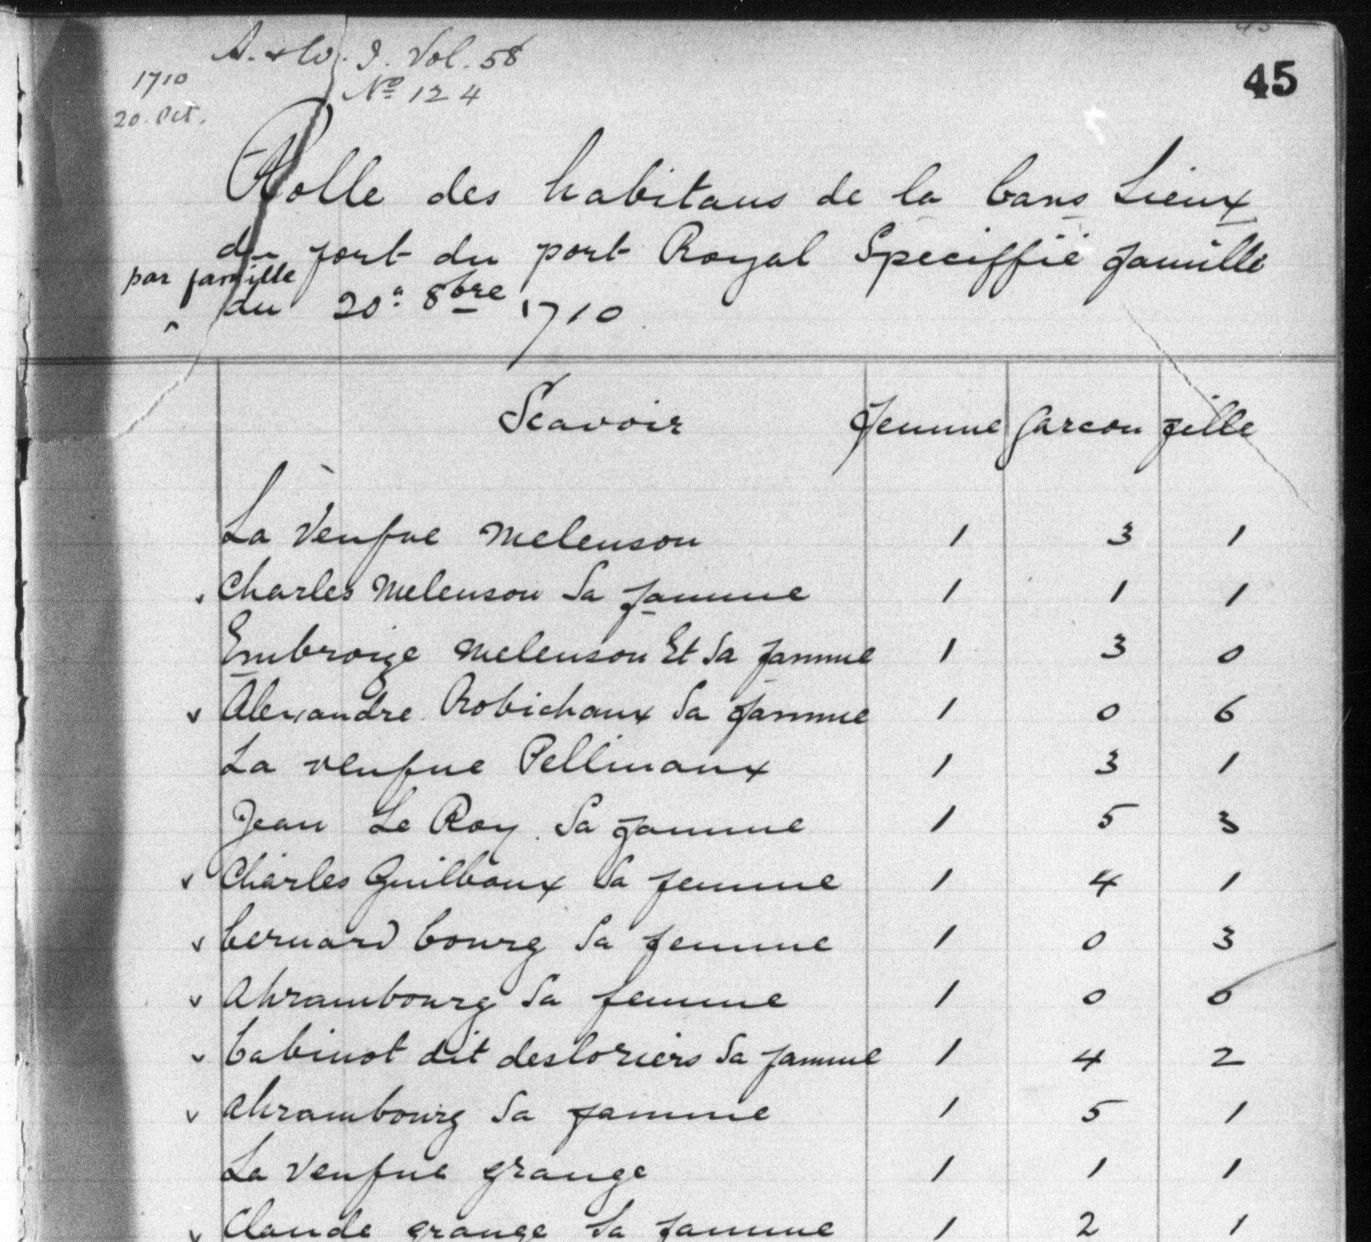 45
A. & W. I. Vol. 58
1710
Nº 124
20. Oct.
Rolle des habitans de la bans Lieux
du fort du port Royal Speciffié famille
par famille
du 20e 8bre 1710
Scavoir femme garcon fille
La Veufve melenson 1 3 1
Charles melenson Sa famme 1 1 1
Embroize melenson Et Sa famme 1 3 0
v Alexandre Robichaux Sa famme 1 0 6
La veufve Pellinaux 1 3 1
Jean Le Roy Sa famme 1 5 3
v Charles Guilbaux Sa femme 1 4 1
v bernard bourg Sa femme 1 0 3
v Abrambourg Sa femme 1 0 0
v babinot dit desloriers Sa famme 1 4 2
v abrambourg Sa famme 1 5 1
La Veufve grange 1 1 1
v Claude grange Sa famme 1 2 1